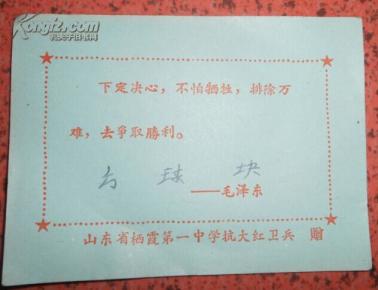 Kongfz.com
孔夫子旧书网
下定决心，不怕牺牲，排除万
难，去争取勝利。
——毛泽东
山东省栖霞第一中学抗大红卫兵 贈